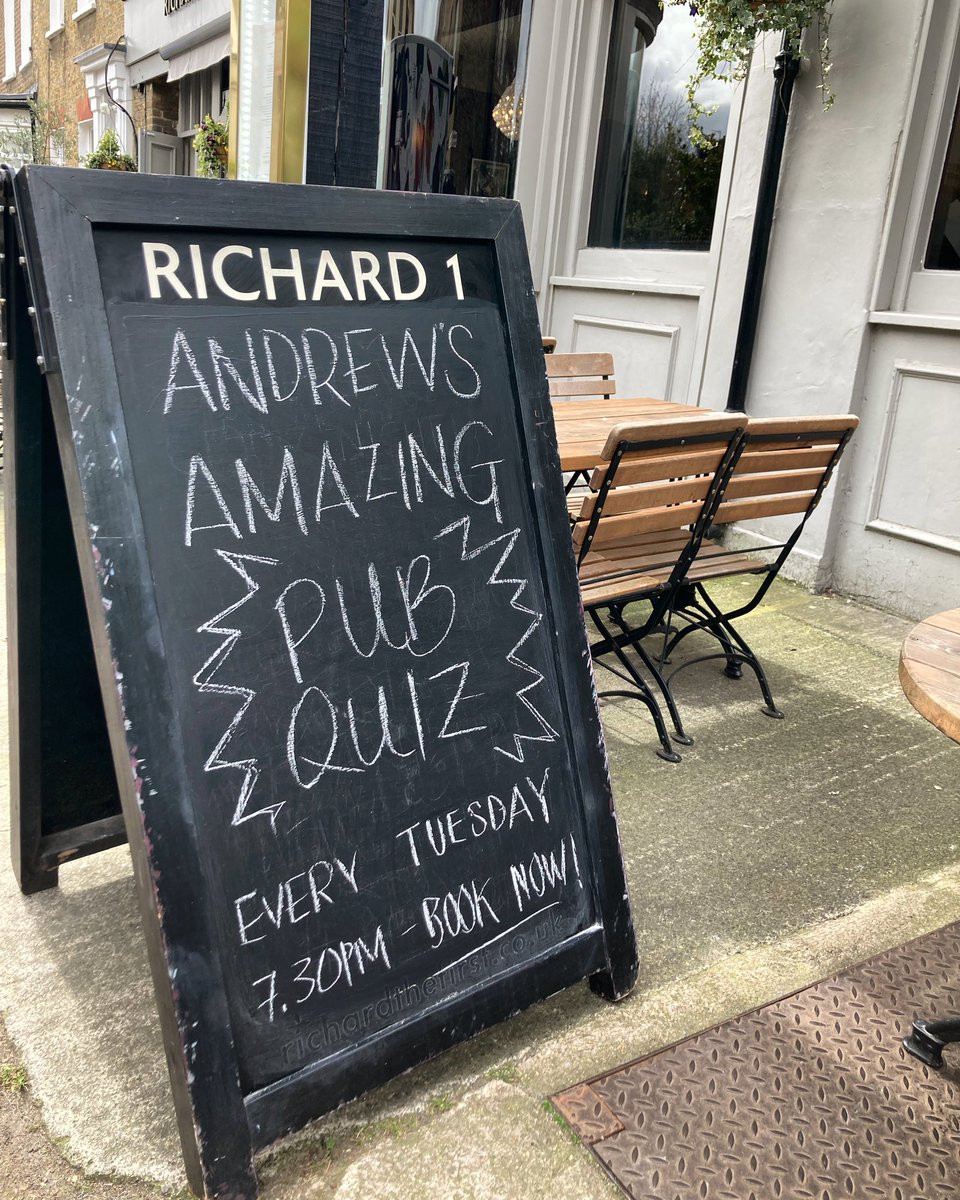 RICHARD 1
ANDREW'S
AMAZING
PUB
QUIZ
EVERY TUESDAY
7.30PM - BOOK NOW!
richardthefirst.co.uk